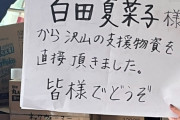 白田夏菓子様
から沢山の支援物資を
直接頂きました。
皆様でどうぞ